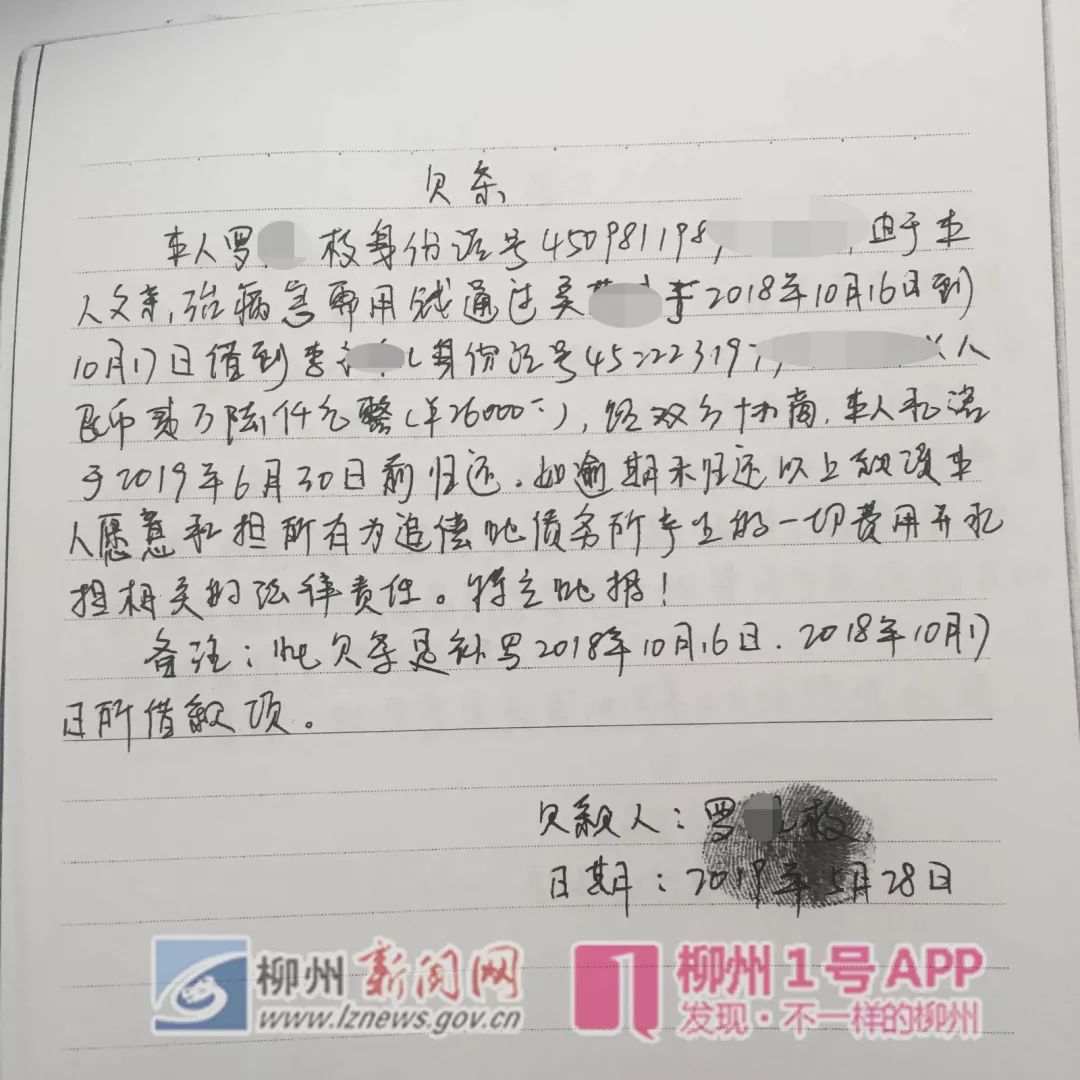 欠条
本人罗 枝身份证号450981198 ,由于本
人父亲,治病急需用钱通过吴 于2018年10月16日到
10月17日借到李 身份证号45222319 人
民币贰万陆仟元整(¥26000元),经双方协商,本人承诺
于2019年6月30日前归还。如逾期未归还以上款项本
人愿意承担所有为追偿此债务所产生的一切费用并承
担相关的法律责任。特立此据!
备注:此欠条是补写2018年10月16日.2018年10月17
日所借款项。
欠款人:罗 枝
日期:2019年5月28日
柳州新闻网
www.lznews.gov.cn
柳州1号APP
发现·不一样的柳州